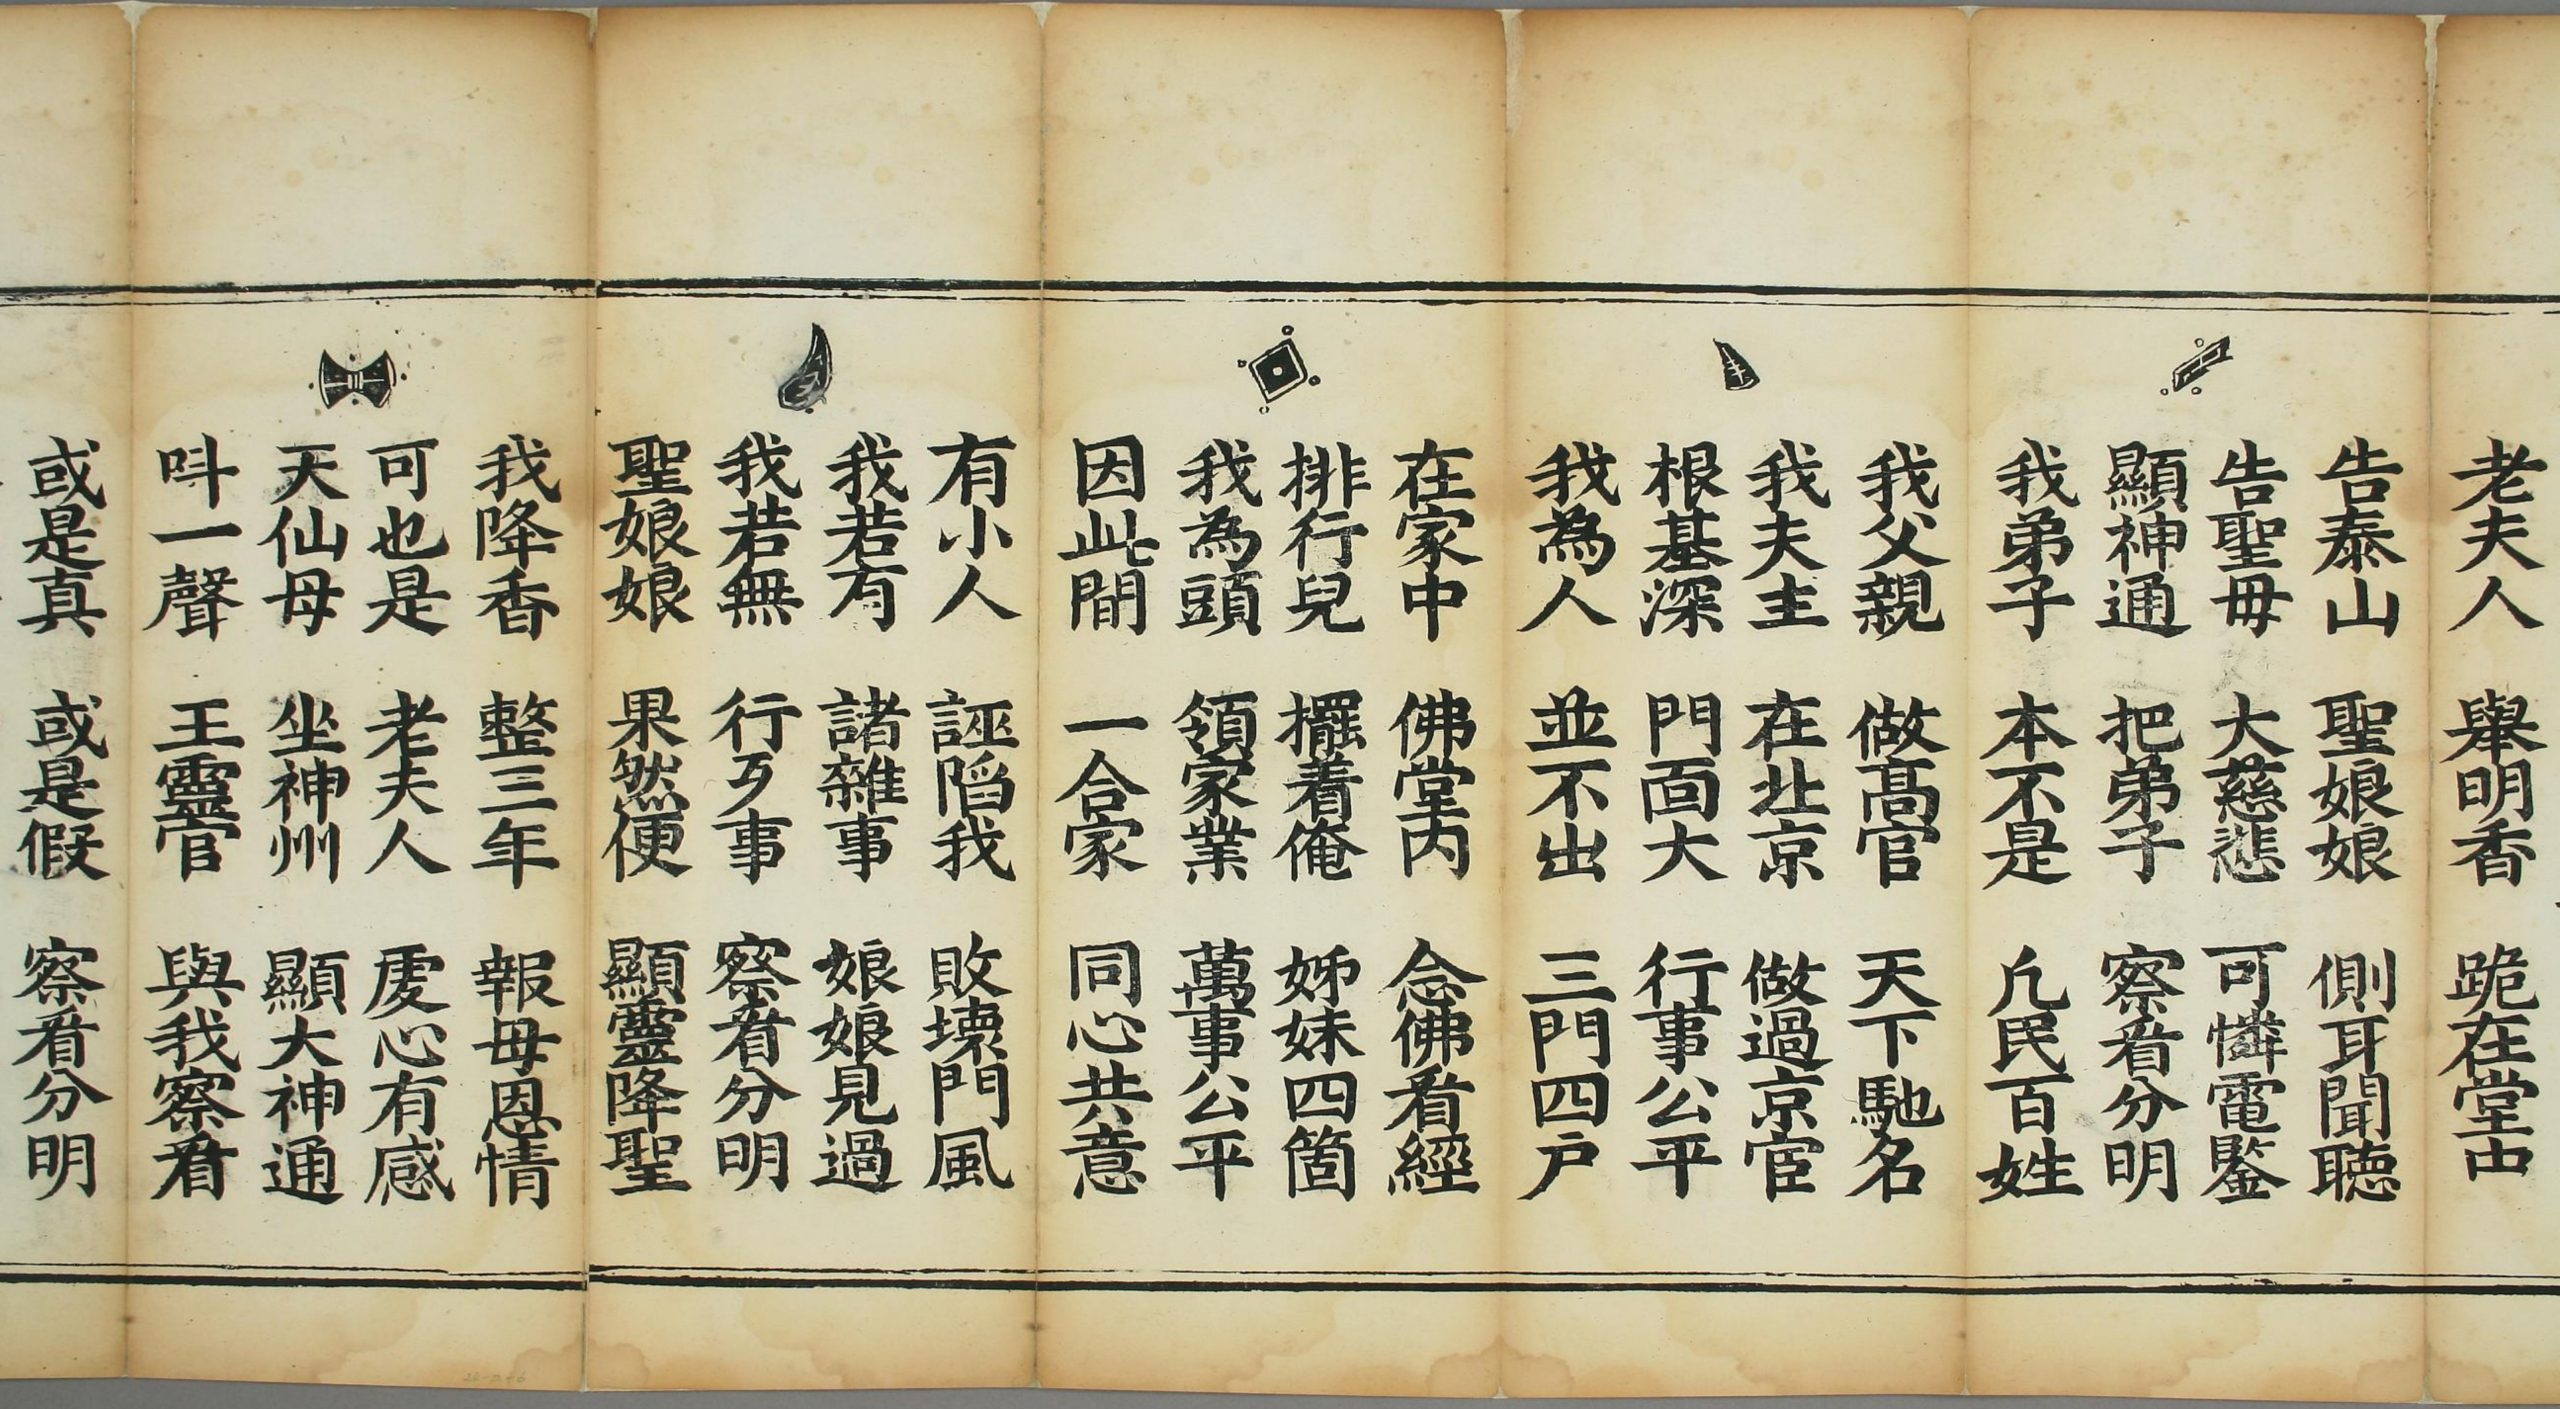 老夫人 舉明香 跪在堂中
告泰山 聖娘娘 側耳聞聽
告聖母 大慈悲 可憐電鑒
顯神通 把弟子 察看分明
我弟子 本不是 凡民百姓
我父親 做高官 天下馳名
我夫主 在北京 做過京宦
根基深 門面大 行事公平
我為人 並不出 三門四户
在家中 佛堂內 念佛看經
排行兒 擺着俺 姊妹四箇
我為頭 領家業 萬事公平
因此間 一合家 同心共意
有小人 誣陷我 敗壞門風
我若有 諸雜事 娘娘見過
我若無 行歹事 察看分明
聖娘娘 果然便 顯靈降聖
我降香 整三年 報母恩情
可也是 老夫人 虔心有感
天仙母 坐神州 顯大神通
呌一聲 王靈官 與我察看
或是真 或是假 察看分明